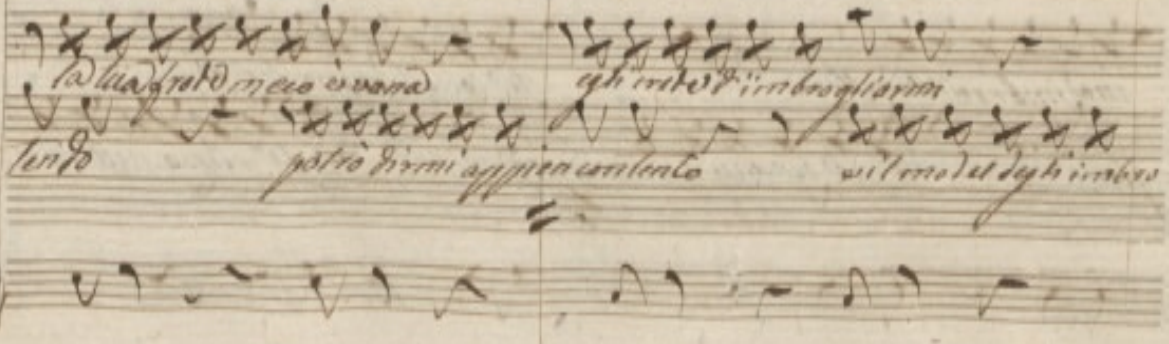 la tua frode meco è vana egli mi d'imbrogliarmi
tendo potrò dirmi appien contento il model degli imbro